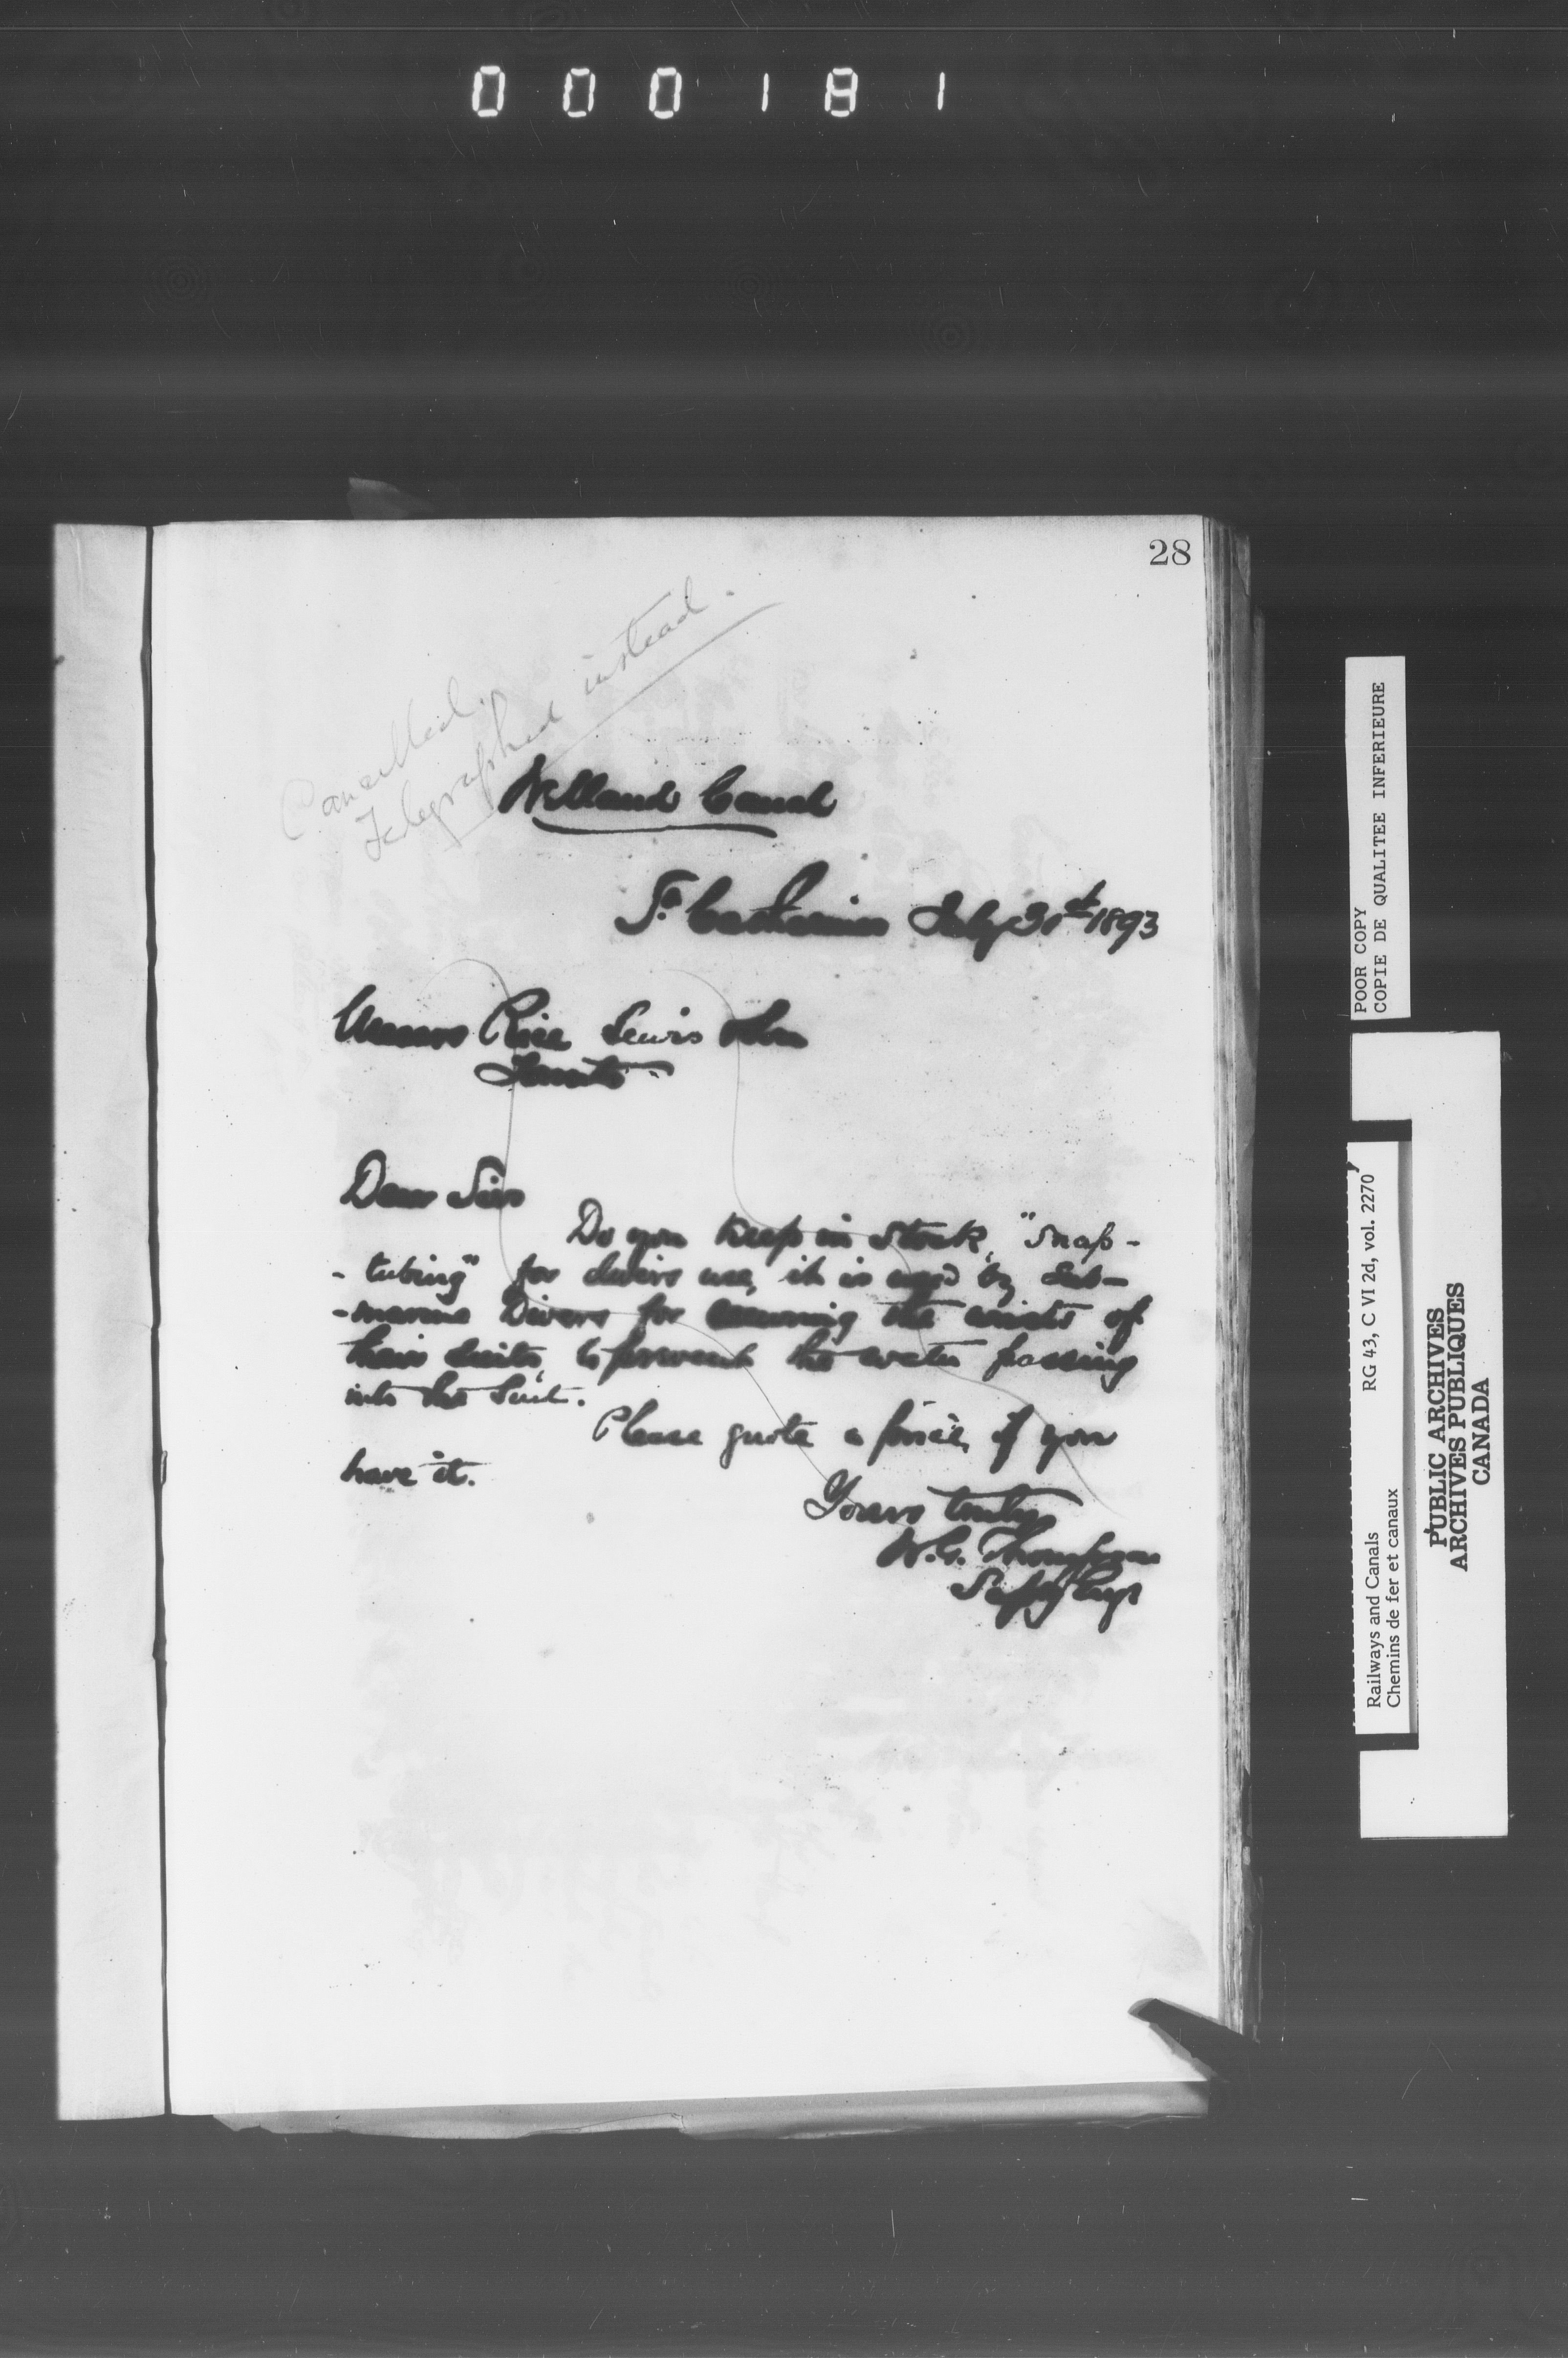 000181
28
Cancelled.
Telegraphed instead.
Welland Canal
St. Catharines July 31st 1893
Messrs Rice Lewis & Son
Toronto
Dear Sirs
Do you keep in stock, "Snap-
-tubing" for divers use, it is used by Sub-
-marine Divers for the wrists of
their suits, to prevent the water passing
into the suit.
Please quote a price, if you
have it.
Yours truly
W.G. Thompson
Suptg Engr
POOR COPY
COPIE DE QUALITEE INFERIEURE
RG 43, C VI 2d, vol. 2270
Railways and Canals
Chemins de fer et canaux
PUBLIC ARCHIVES
ARCHIVES PUBLIQUES
CANADA